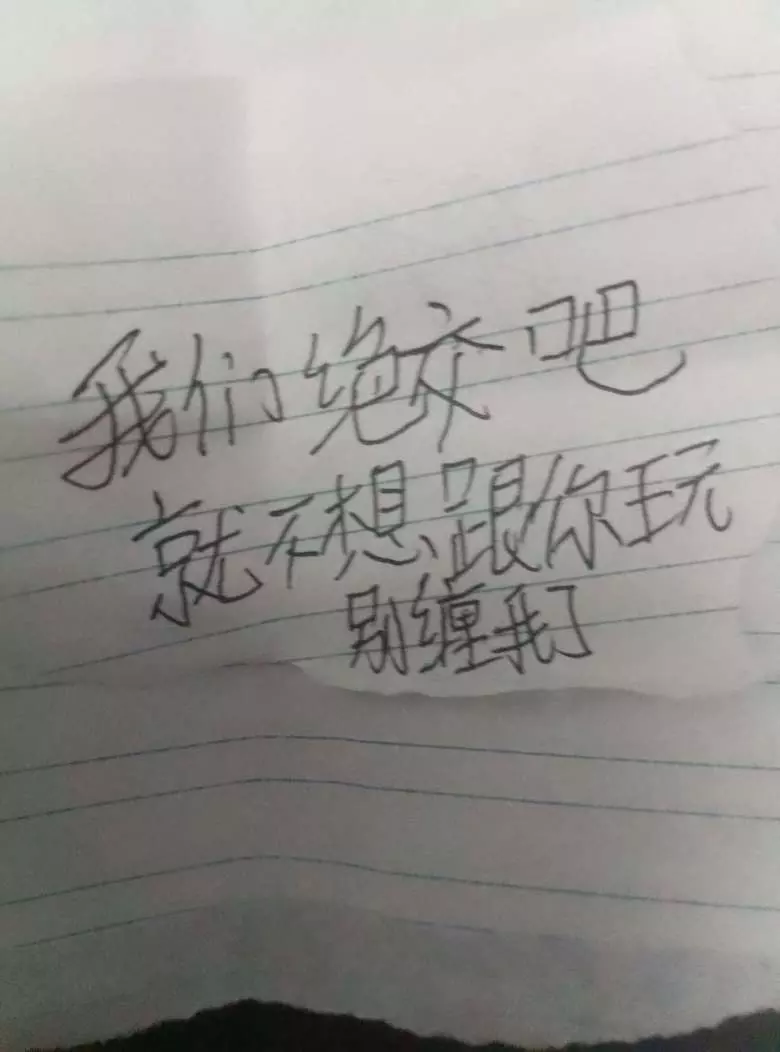 我们绝交吧
就不想跟你玩
别缠我了